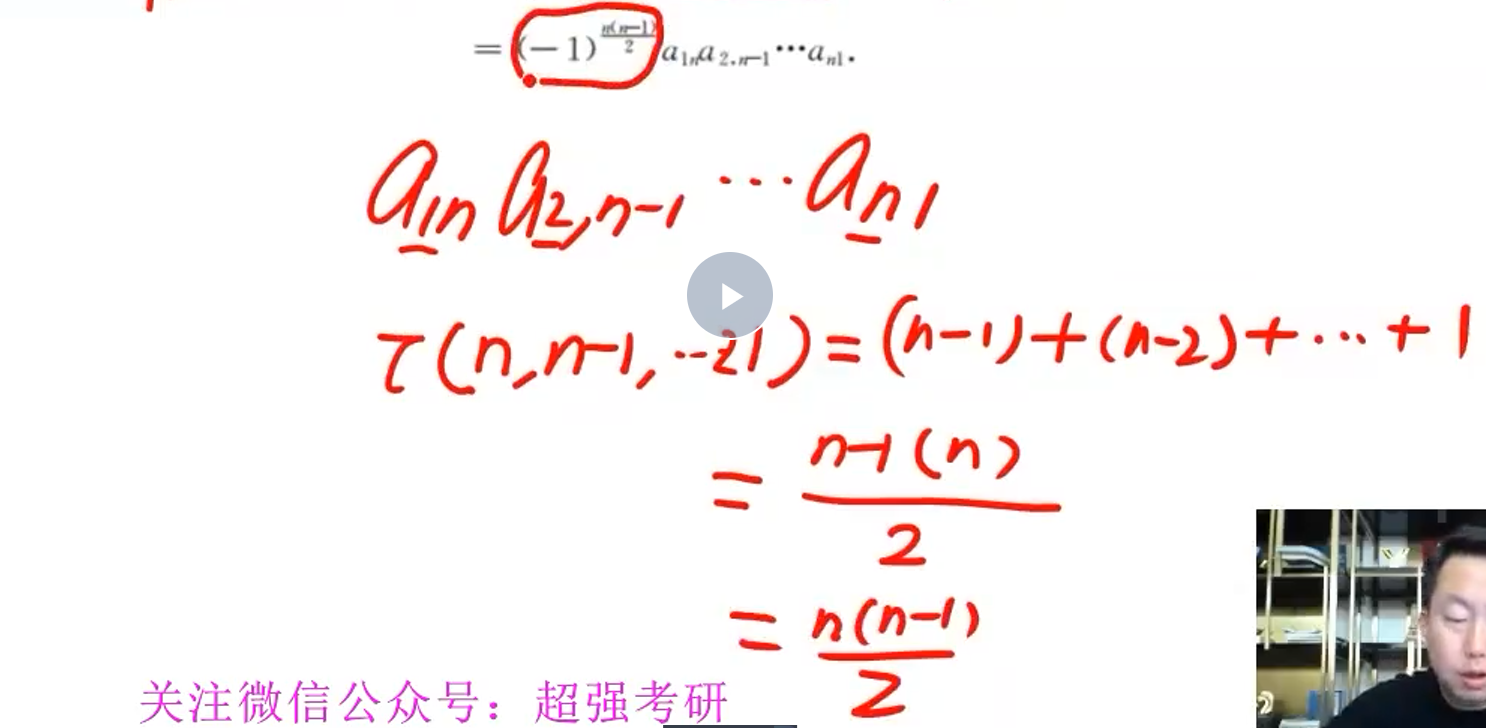 = (−1)^{\frac{n(n−1)}{2}} a_{1n}a_{2,n−1}⋯a_{n1}.
a_{1n} a_{2,n-1} ⋯ a_{n1}
τ(n,n-1,⋯21) = (n-1)+(n-2)+⋯+1
= \frac{n-1(n)}{2}
= \frac{n(n-1)}{2}
关注微信公众号：超强考研